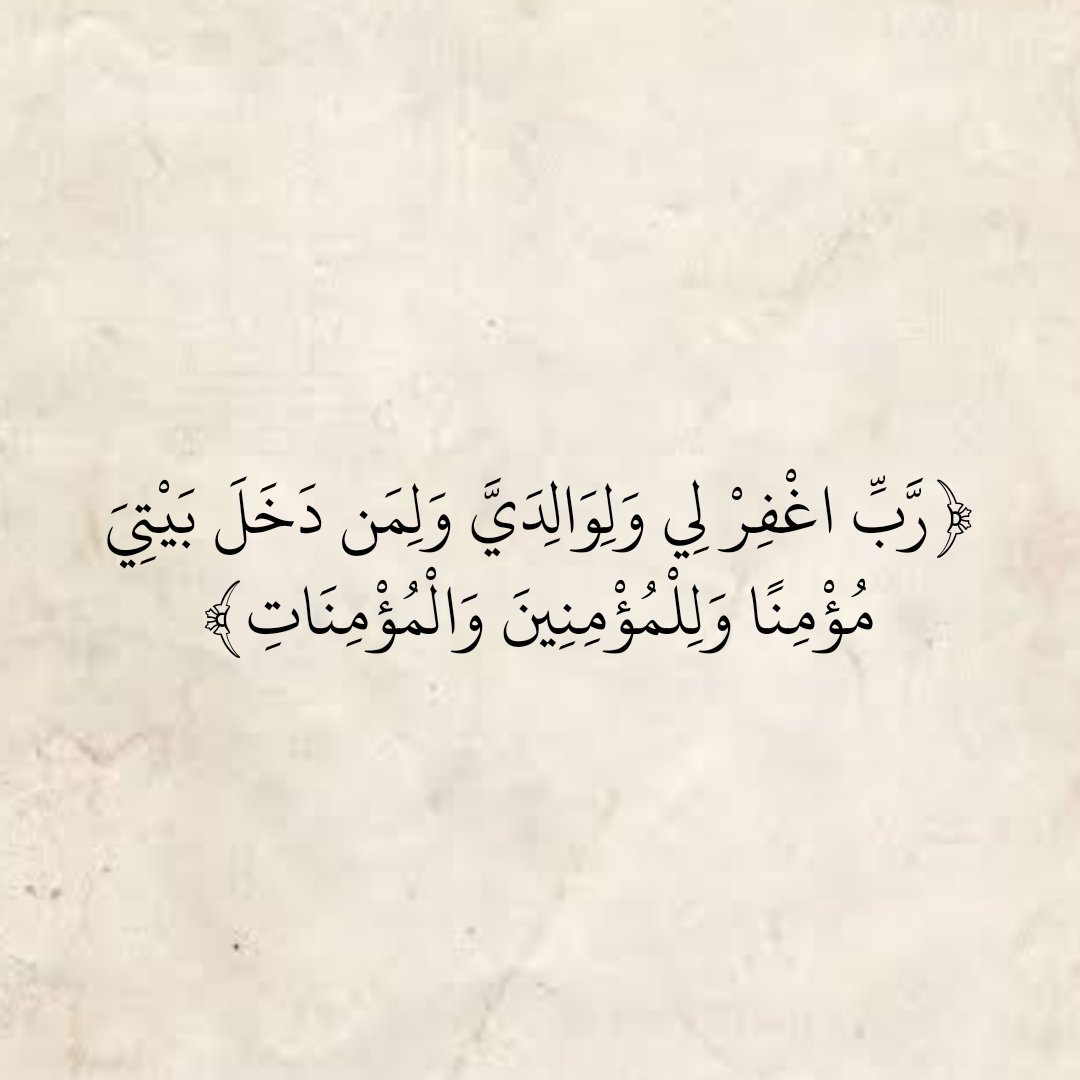 ﴿رَّبِّ اغْفِرْ لِي وَلِوَالِدَيَّ وَلِمَن دَخَلَ بَيْتِيَ
مُؤْمِنًا وَلِلْمُؤْمِنِينَ وَالْمُؤْمِنَاتِ﴾